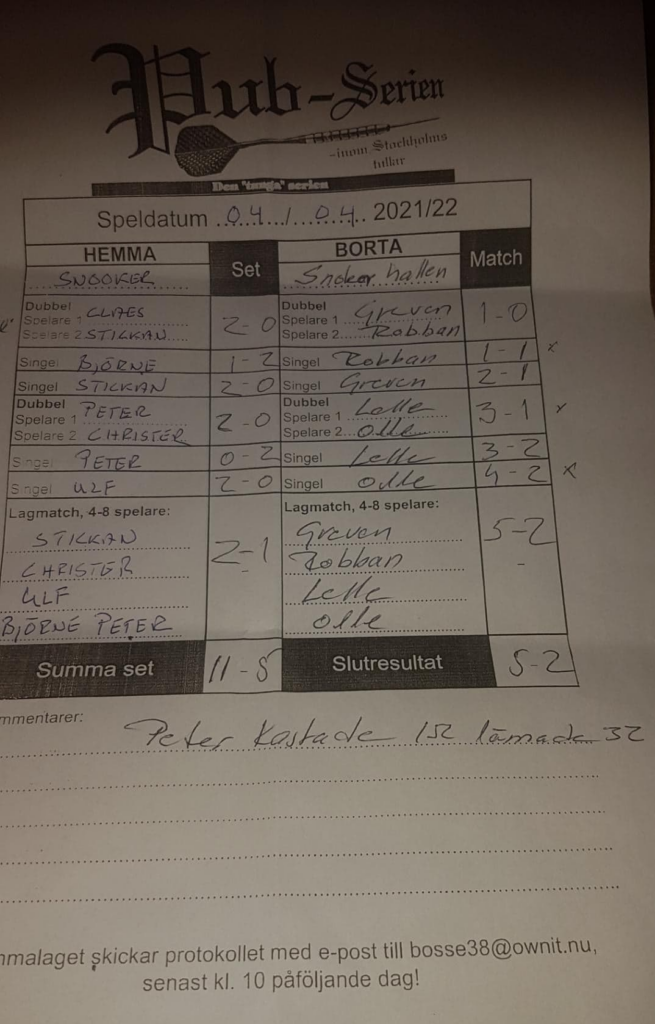 Pub-Serien
-inom Stockholms
tullar
Den "tunga" serien
Speldatum 04 / 04 2021/22
HEMMA Set BORTA Match
SNOOKER Snokerhallen
Dubbel Dubbel
Spelare 1 CLAES 2-0 Spelare 1 Greven 1-0
Spelare 2 STICKAN Spelare 2 Robban
Singel BJÖRNE 1-2 Singel Robban 1-1 x
Singel STICKAN 2-0 Singel Greven 2-1
Dubbel Dubbel
Spelare 1 PETER 2-0 Spelare 1 Lelle 3-1 x
Spelare 2 CHRISTER Spelare 2 Olle
Singel PETER 0-2 Singel Lelle 3-2
Singel ULF 2-0 Singel Olle 4-2 x
Lagmatch, 4-8 spelare: Lagmatch, 4-8 spelare:
STICKAN 2-1 Greven 5-2
CHRISTER Robban
ULF Lelle
BJÖRNE PETER Olle
Summa set 11-5 Slutresultat 5-2
mmentarer:
Peter Kastade 152 lämade 32
mmalaget skickar protokollet med e-post till bosse38@ownit.nu,
senast kl. 10 påföljande dag!